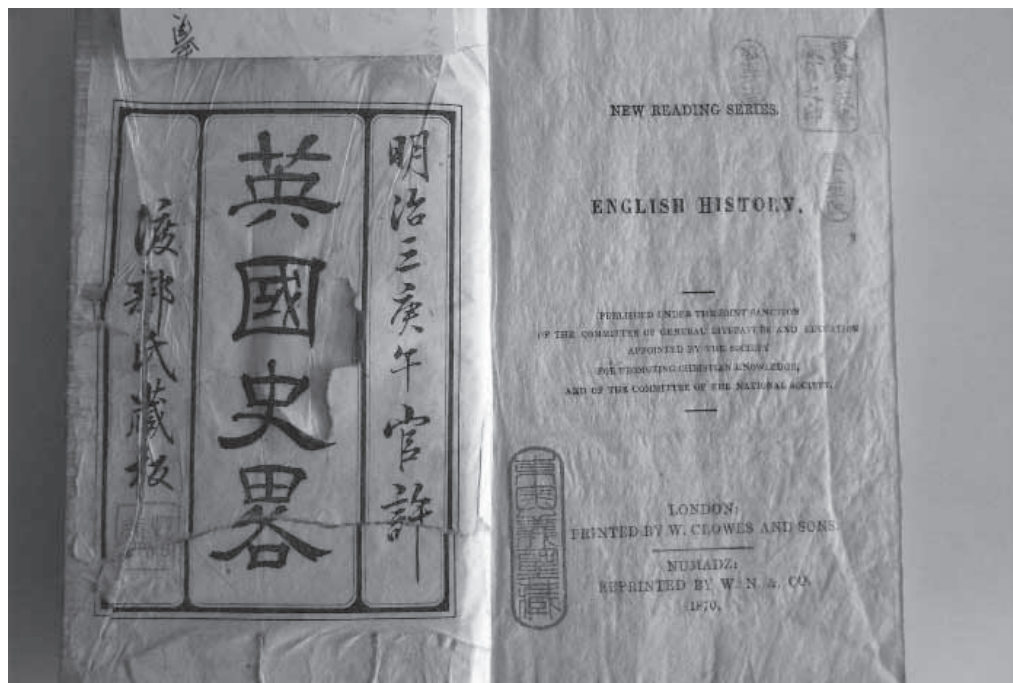 明治三庚午官許
英國史畧
渡部氏蔵板
NEW READING SERIES.
ENGLISH HISTORY.
PUBLISHED UNDER THE JOINT SANCTION
OF THE COMMITTEE OF GENERAL LITERATURE AND EDUCATION
APPOINTED BY THE SOCIETY
FOR PROMOTING CHRISTIAN KNOWLEDGE,
AND OF THE COMMITTEE OF THE NATIONAL SOCIETY.
LONDON:
PRINTED BY W. CLOWES AND SONS.
NUMADZ:
REPRINTED BY W. N. & CO.
1870.